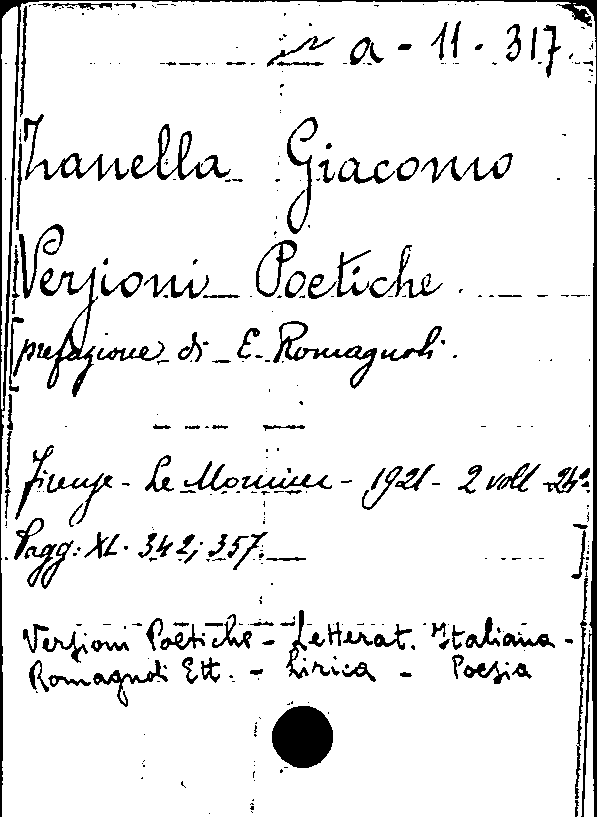 a - 11 - 317.
Zanella Giacomo
Versioni Poetiche.
[prefazione di E. Romagnoli.
Firenze - Le Monnier - 1921 - 2 voll - 24°.
Pagg: XL. 342; 357. ]
Versioni Poetiche - Letterat. Italiana -
Romagnoli Ett. - Lirica - Poesia